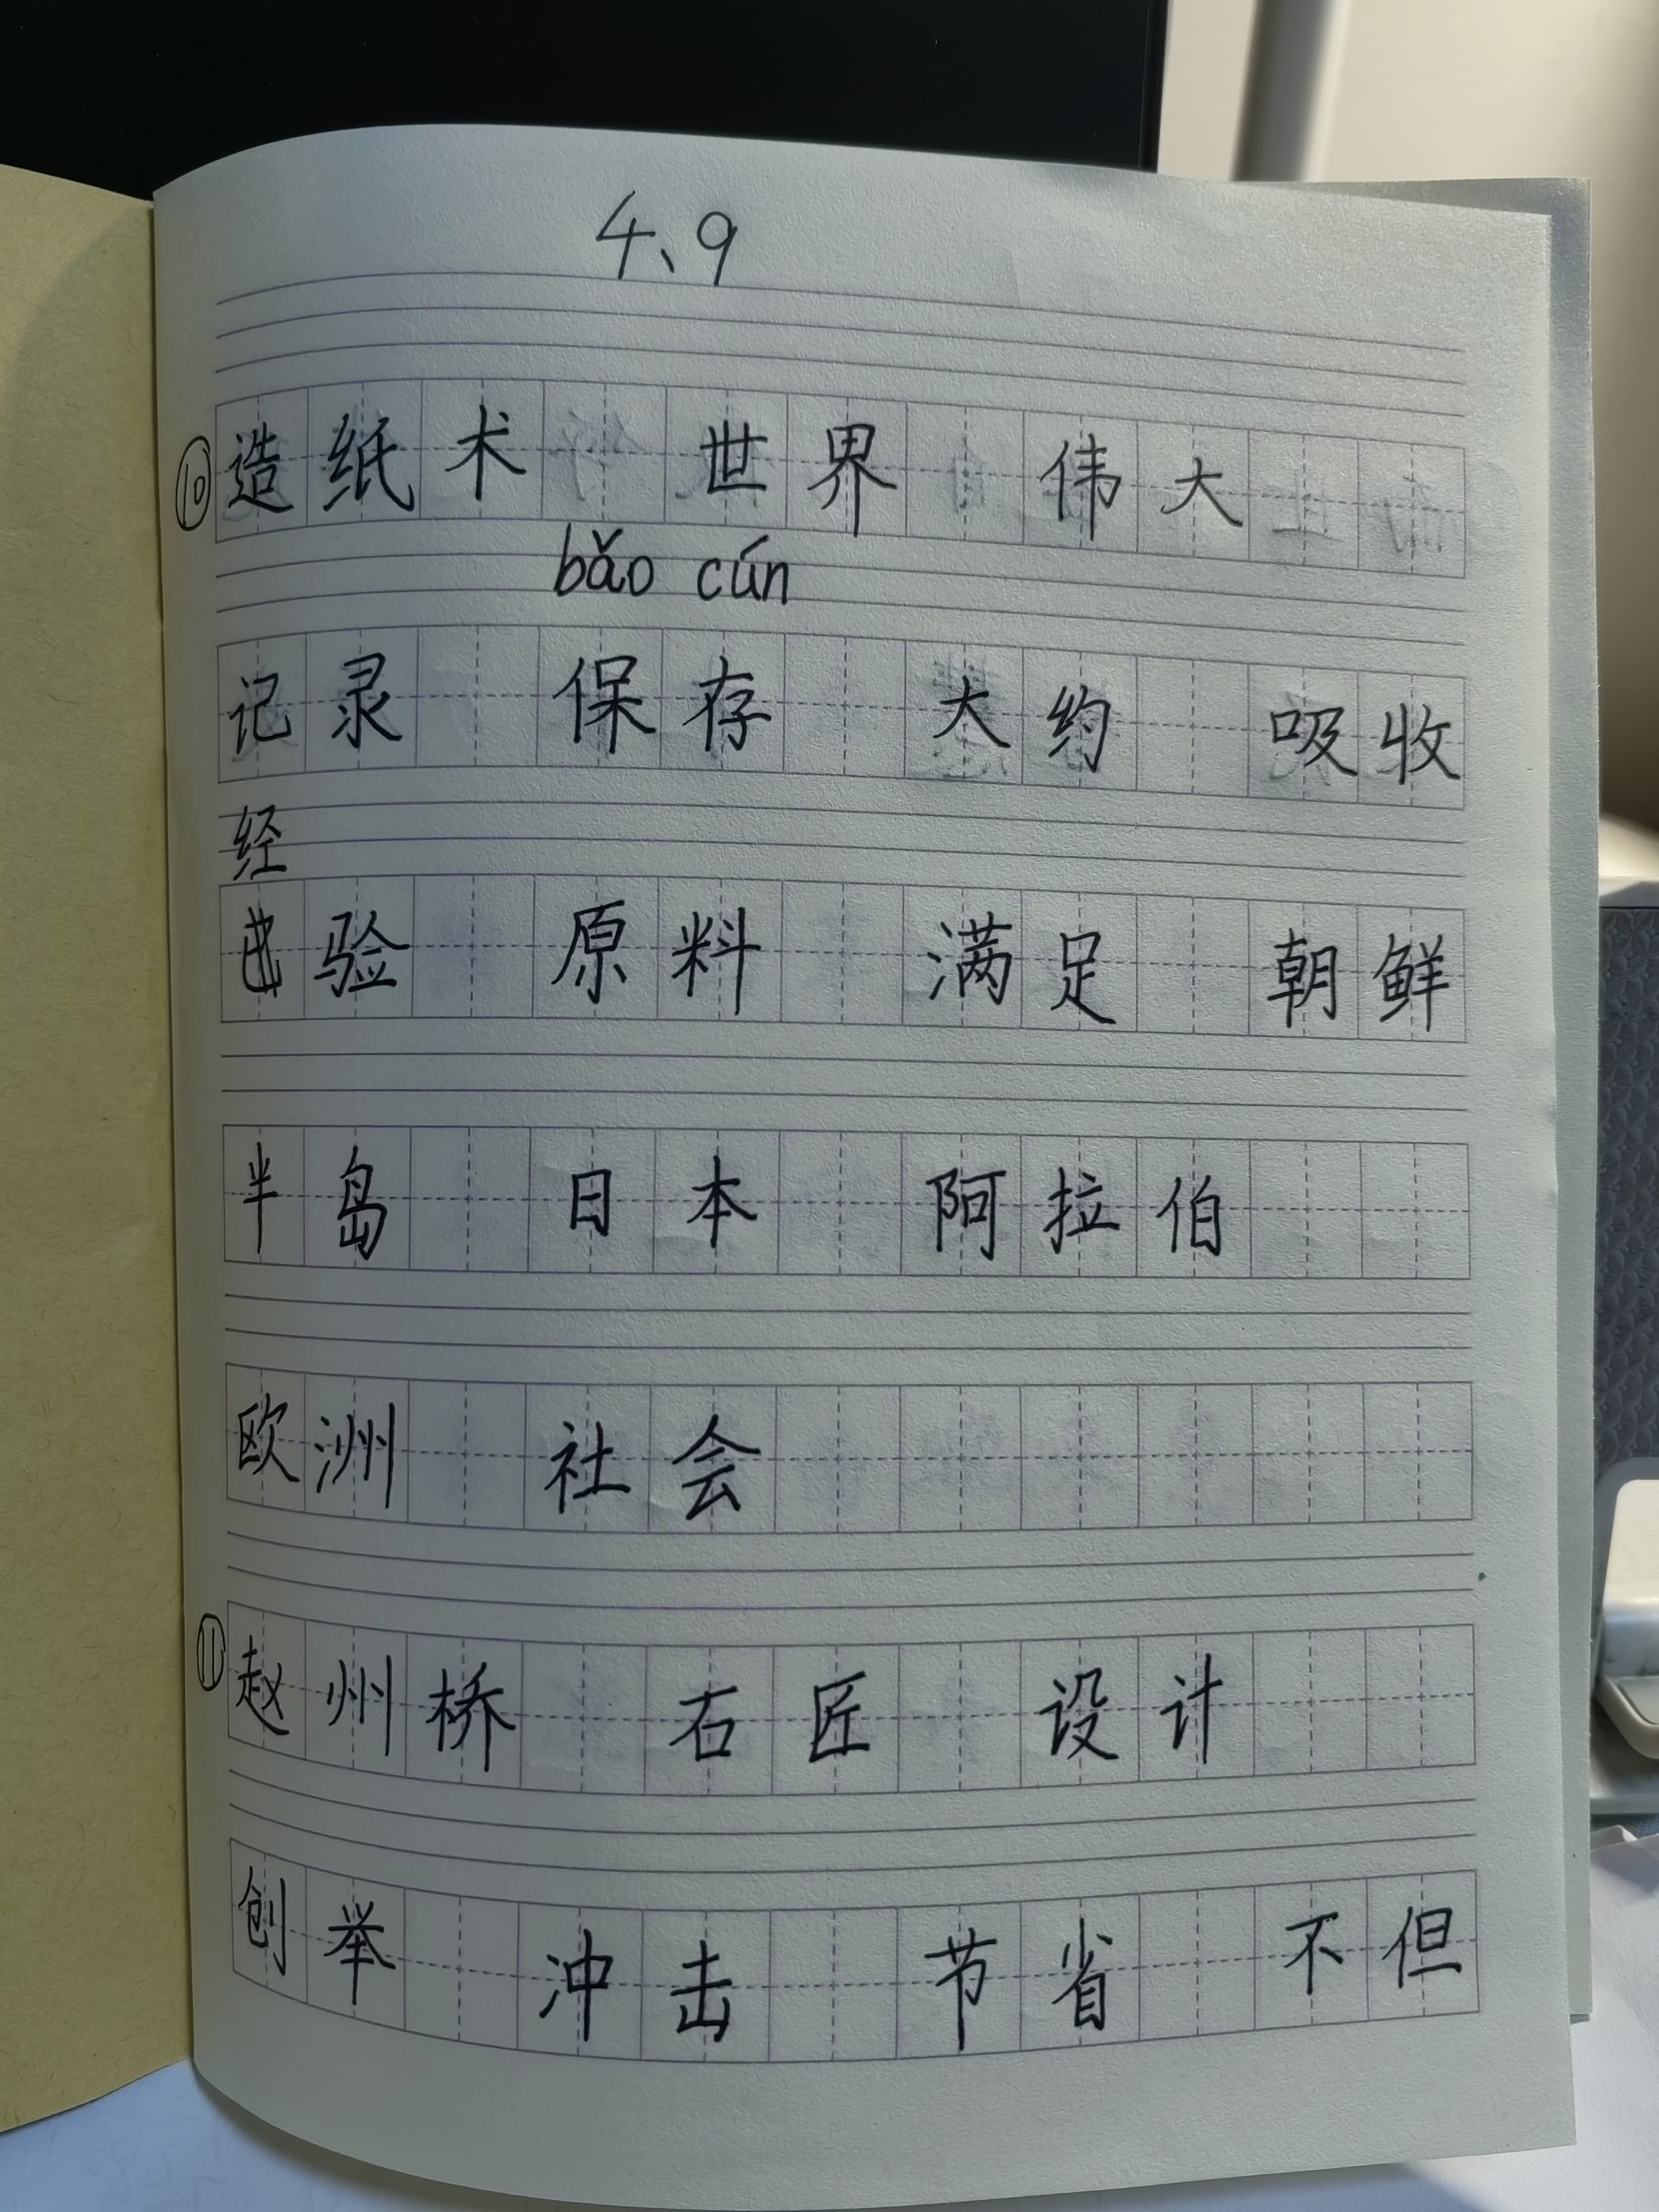 4、9
⑩造纸术 世界 伟大
bǎo cún
记录 保存 大约 吸收
经
验 原料 满足 朝鲜
半岛 日本 阿拉伯
欧洲 社会
⑪赵州桥 石匠 设计
创举 冲击 节省 不但